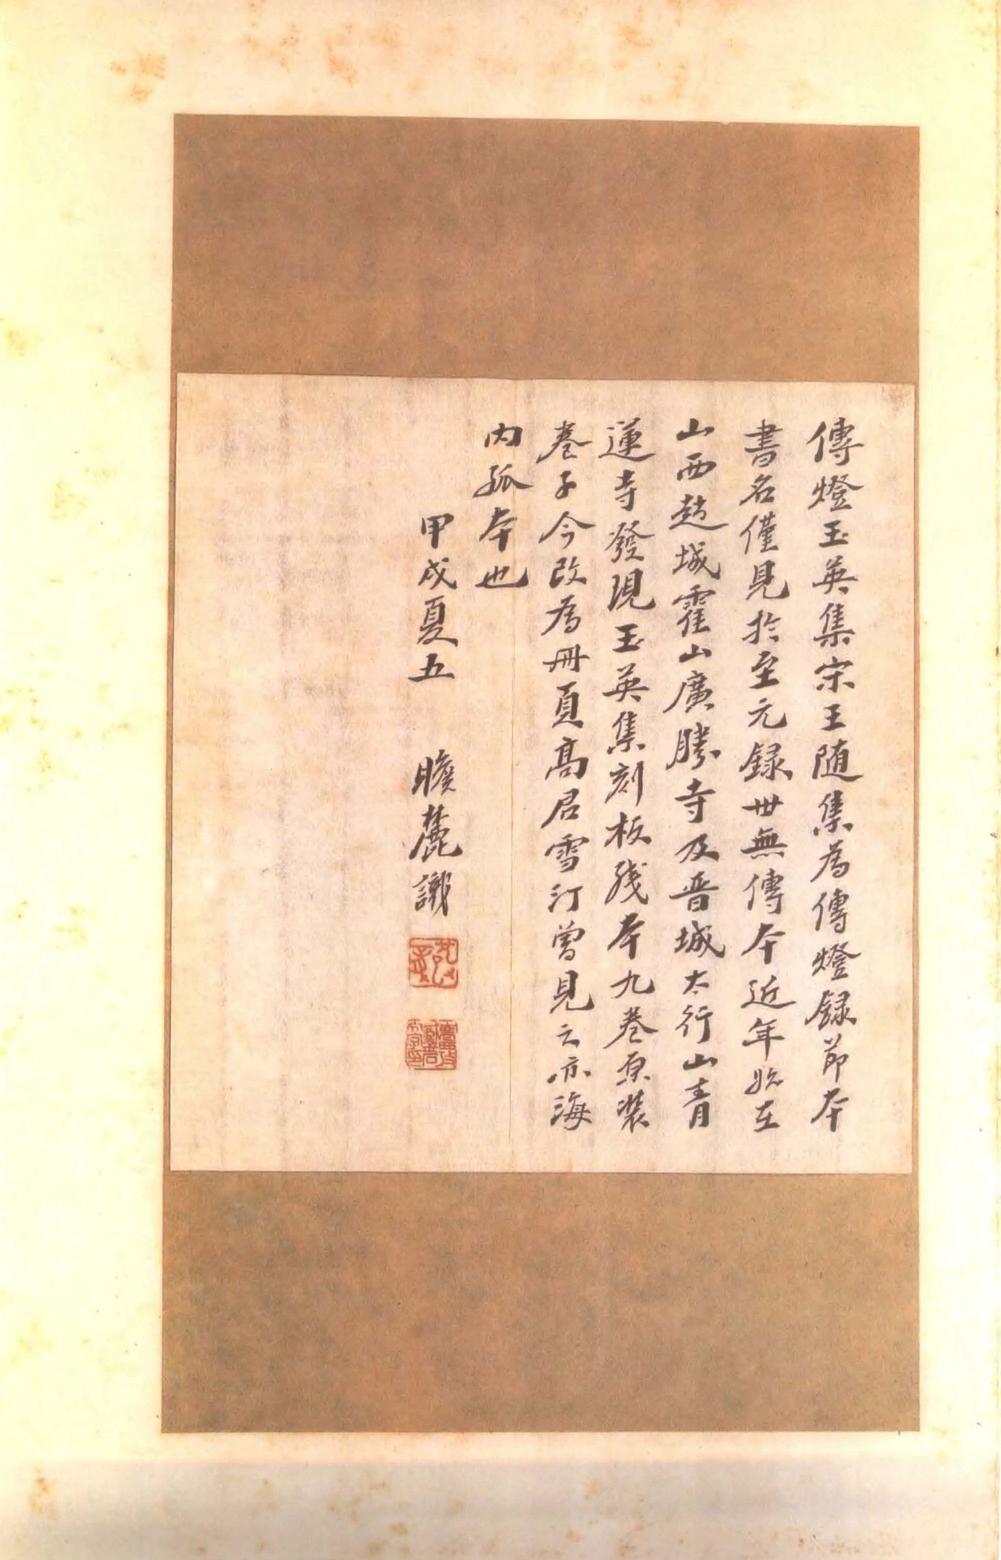 傳燈玉英集宋王随集為傳燈録節本
書名僅見於至元録世無傳本近年始在
山西趙城霍山廣勝寺及晋城太行山青
蓮寺發現玉英集刻板残本九卷原装
卷子今改為冊頁高君雪汀曾見之亦海
内孤本也
甲戌夏五 瞻麓識